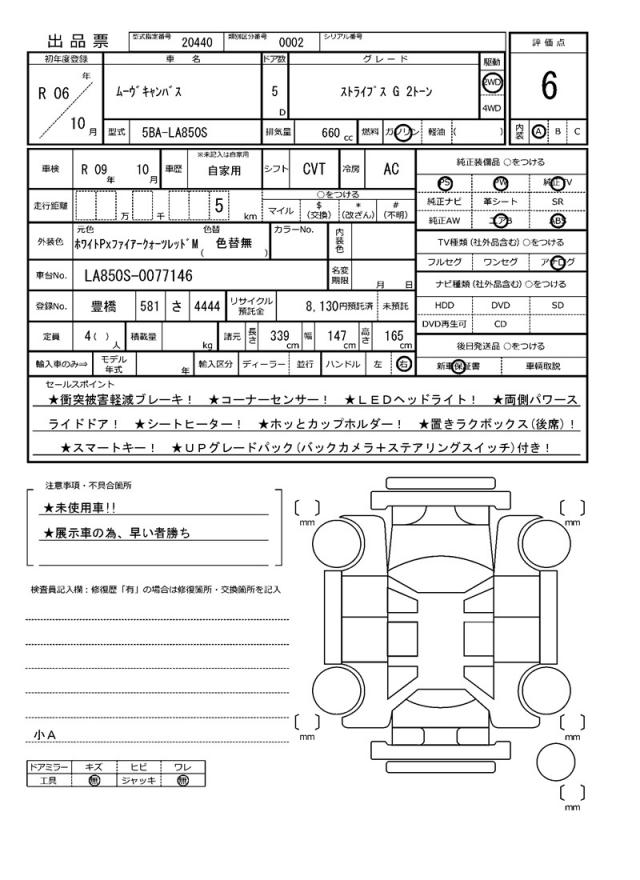 出品票 型式指定番号 20440 類別区分番号 0002 シリアル番号
評価点
6
内装 A B C
初年度登録 車名 ドア数 グレード 駆動
R 06 年 10 月 ムーヴキャンバス 5 D ストライプス G 2トーン 2WD 4WD
型式 5BA-LA850S 排気量 660 cc 燃料 ガソリン 軽油 ( )
車検 R 09 年 10 月 車歴 ※未記入は自家用 自家用 シフト CVT 冷房 AC
走行距離 万 千 5 km ○をつける マイル $ (交換) * (改ざん) # (不明)
外装色 元色 ホワイトPxファイアークォーツレッドM 色替 ( 色替無 ) カラーNo. 内装色
車台No. LA850S-0077146 名変期限 月 日
登録No. 豊橋 581 さ 4444 リサイクル預託金 8,130円預託済 未預託
定員 4( ) 人 積載量 kg 諸元 長さ 339 cm 幅 147 cm 高さ 165 cm
輸入車のみ⇒ モデル年式 年 輸入区分 ディーラー 並行 ハンドル 左 右
純正装備品 ○をつける
PS PW 純正TV
純正ナビ 革シート SR
純正AW エアB ABS
TV種類(社外品含む) ○をつける
フルセグ ワンセグ アナログ
ナビ種類(社外品含む) ○をつける
HDD DVD SD
DVD再生可 CD
後日発送品 ○をつける
新車保証書 車輌取説
セールスポイント
★衝突被害軽減ブレーキ! ★コーナーセンサー! ★LEDヘッドライト! ★両側パワース
ライドドア! ★シートヒーター! ★ホッとカップホルダー! ★置きラクボックス(後席)!
★スマートキー! ★UPグレードパック(バックカメラ+ステアリングスイッチ)付き!
注意事項・不具合箇所
★未使用車!!
★展示車の為、早い者勝ち
検査員記入欄:修復歴「有」の場合は修復箇所・交換箇所を記入
小A
ドアミラー キズ ヒビ ワレ
工具 無 ジャッキ 無
mm
mm
mm
mm
mm